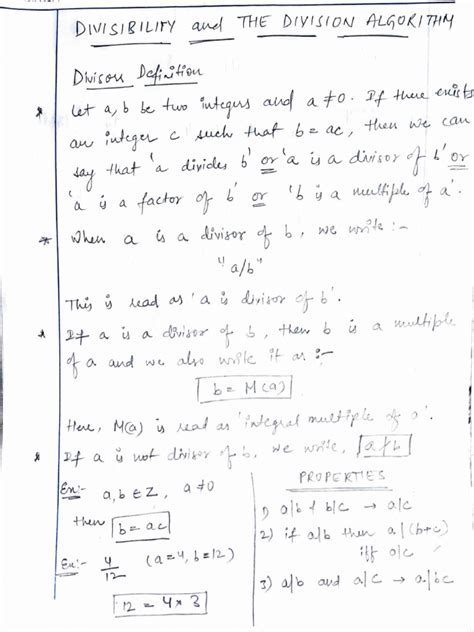 DIVISIBILITY and THE DIVISION ALGORITHM
Divisors Definition
* Let a, b be two integers and a ≠ 0. If there exists
an integer c such that b = ac, then we can
say that 'a divides b' or 'a is a divisor of b' or
'a is a factor of b' or 'b is a multiple of a'.
* When a is a divisor of b, we write :-
"a/b"
This is read as 'a is divisor of b'.
* If a is a divisor of b, then b is a multiple
of a and we also write it as :-
b = M(a)
Here, M(a) is read as 'integral multiple of a'.
* If a is not divisor of b, we write, a∤b
Ex:- a, b ∈ Z, a ≠ 0
then b = ac
Ex:- 4/12 (a=4, b=12)
12 = 4 × 3
PROPERTIES
1) a|b & b|c → a|c
2) if a|b then a|(b+c)
iff a|c
3) a|b and a|c → a|bc